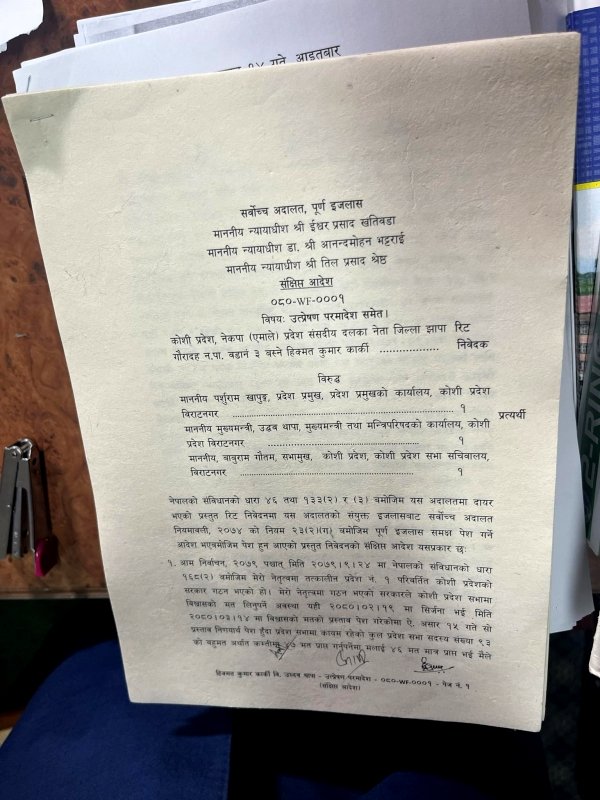 गते, आइतबार
सर्वोच्च अदालत, पूर्ण इजलास
माननीय न्यायाधीश श्री ईश्वर प्रसाद खतिवडा
माननीय न्यायाधीश डा. श्री आनन्दमोहन भट्टराई
माननीय न्यायाधीश श्री तिल प्रसाद श्रेष्ठ
संक्षिप्त आदेश
०८०-WF-०००१
विषयः उत्प्रेषण परमादेश समेत।
कोशी प्रदेश, नेकपा (एमाले) प्रदेश संसदीय दलका नेता जिल्ला झापा रिट
गौरादह न.पा. वडानं ३ बस्ने हिक्मत कुमार कार्की .................. निवेदक
विरुद्ध
माननीय पर्शुराम खापुङ्ग, प्रदेश प्रमुख, प्रदेश प्रमुखको कार्यालय, कोशी प्रदेश
विराटनगर ........................................ १ प्रत्यर्थी
माननीय मुख्यमन्त्री, उद्धव थापा, मुख्यमन्त्री तथा मन्त्रिपरिषदको कार्यालय, कोशी
प्रदेश विराटनगर ........................................ १
माननीय, बाबुराम गौतम, सभामुख, कोशी प्रदेश, कोशी प्रदेश सभा सचिवालय,
विराटनगर ........................................ १
नेपालको संविधानको धारा ४६ तथा १३३(२) र (३) बमोजिम यस अदालतमा दायर
भएको प्रस्तुत रिट निवेदनमा यस अदालतको संयुक्त इजलासबाट सर्वोच्च अदालत
नियमावली, २०७४ को नियम २३(२)(ग) बमोजिम पूर्ण इजलास समक्ष पेश गर्ने
आदेश भएबमोजिम पेश हुन आएको प्रस्तुत निवेदनको संक्षिप्त आदेश यसप्रकार छः
१. आम निर्वाचन, २०७९ पश्चात् मिति २०७९।९।२४ मा नेपालको संविधानको धारा
१६८(२) बमोजिम मेरो नेतृत्वमा तत्कालीन प्रदेश नं. १ परिवर्तित कोशी प्रदेशको
सरकार गठन भएको हो। मेरो नेतृत्वमा गठन भएको सरकारले कोशी प्रदेश सभामा
विश्वासको मत लिनुपर्ने अवस्था यही २०८०।०२।१९ मा सिर्जना भई मिति
२०८०।०३।१४ मा विश्वासको मतको प्रस्ताव पेश गरेकोमा ऐ. असार १५ गते सो
प्रस्ताव निर्णयार्थ पेश हुँदा प्रदेश सभामा कायम रहेको कुल प्रदेश सभा सदस्य संख्या ९३
को बहुमत अर्थात कम्तीमा ४७ मत प्राप्त गर्नुपर्नेमा मलाई ४६ मत मात्र प्राप्त भई मैले
हिक्मत कुमार कार्की वि. उद्धव थापा - उत्प्रेषण परमादेश - ०८०-WF-०००१ - पेज नं. १
(संक्षिप्त आदेश)